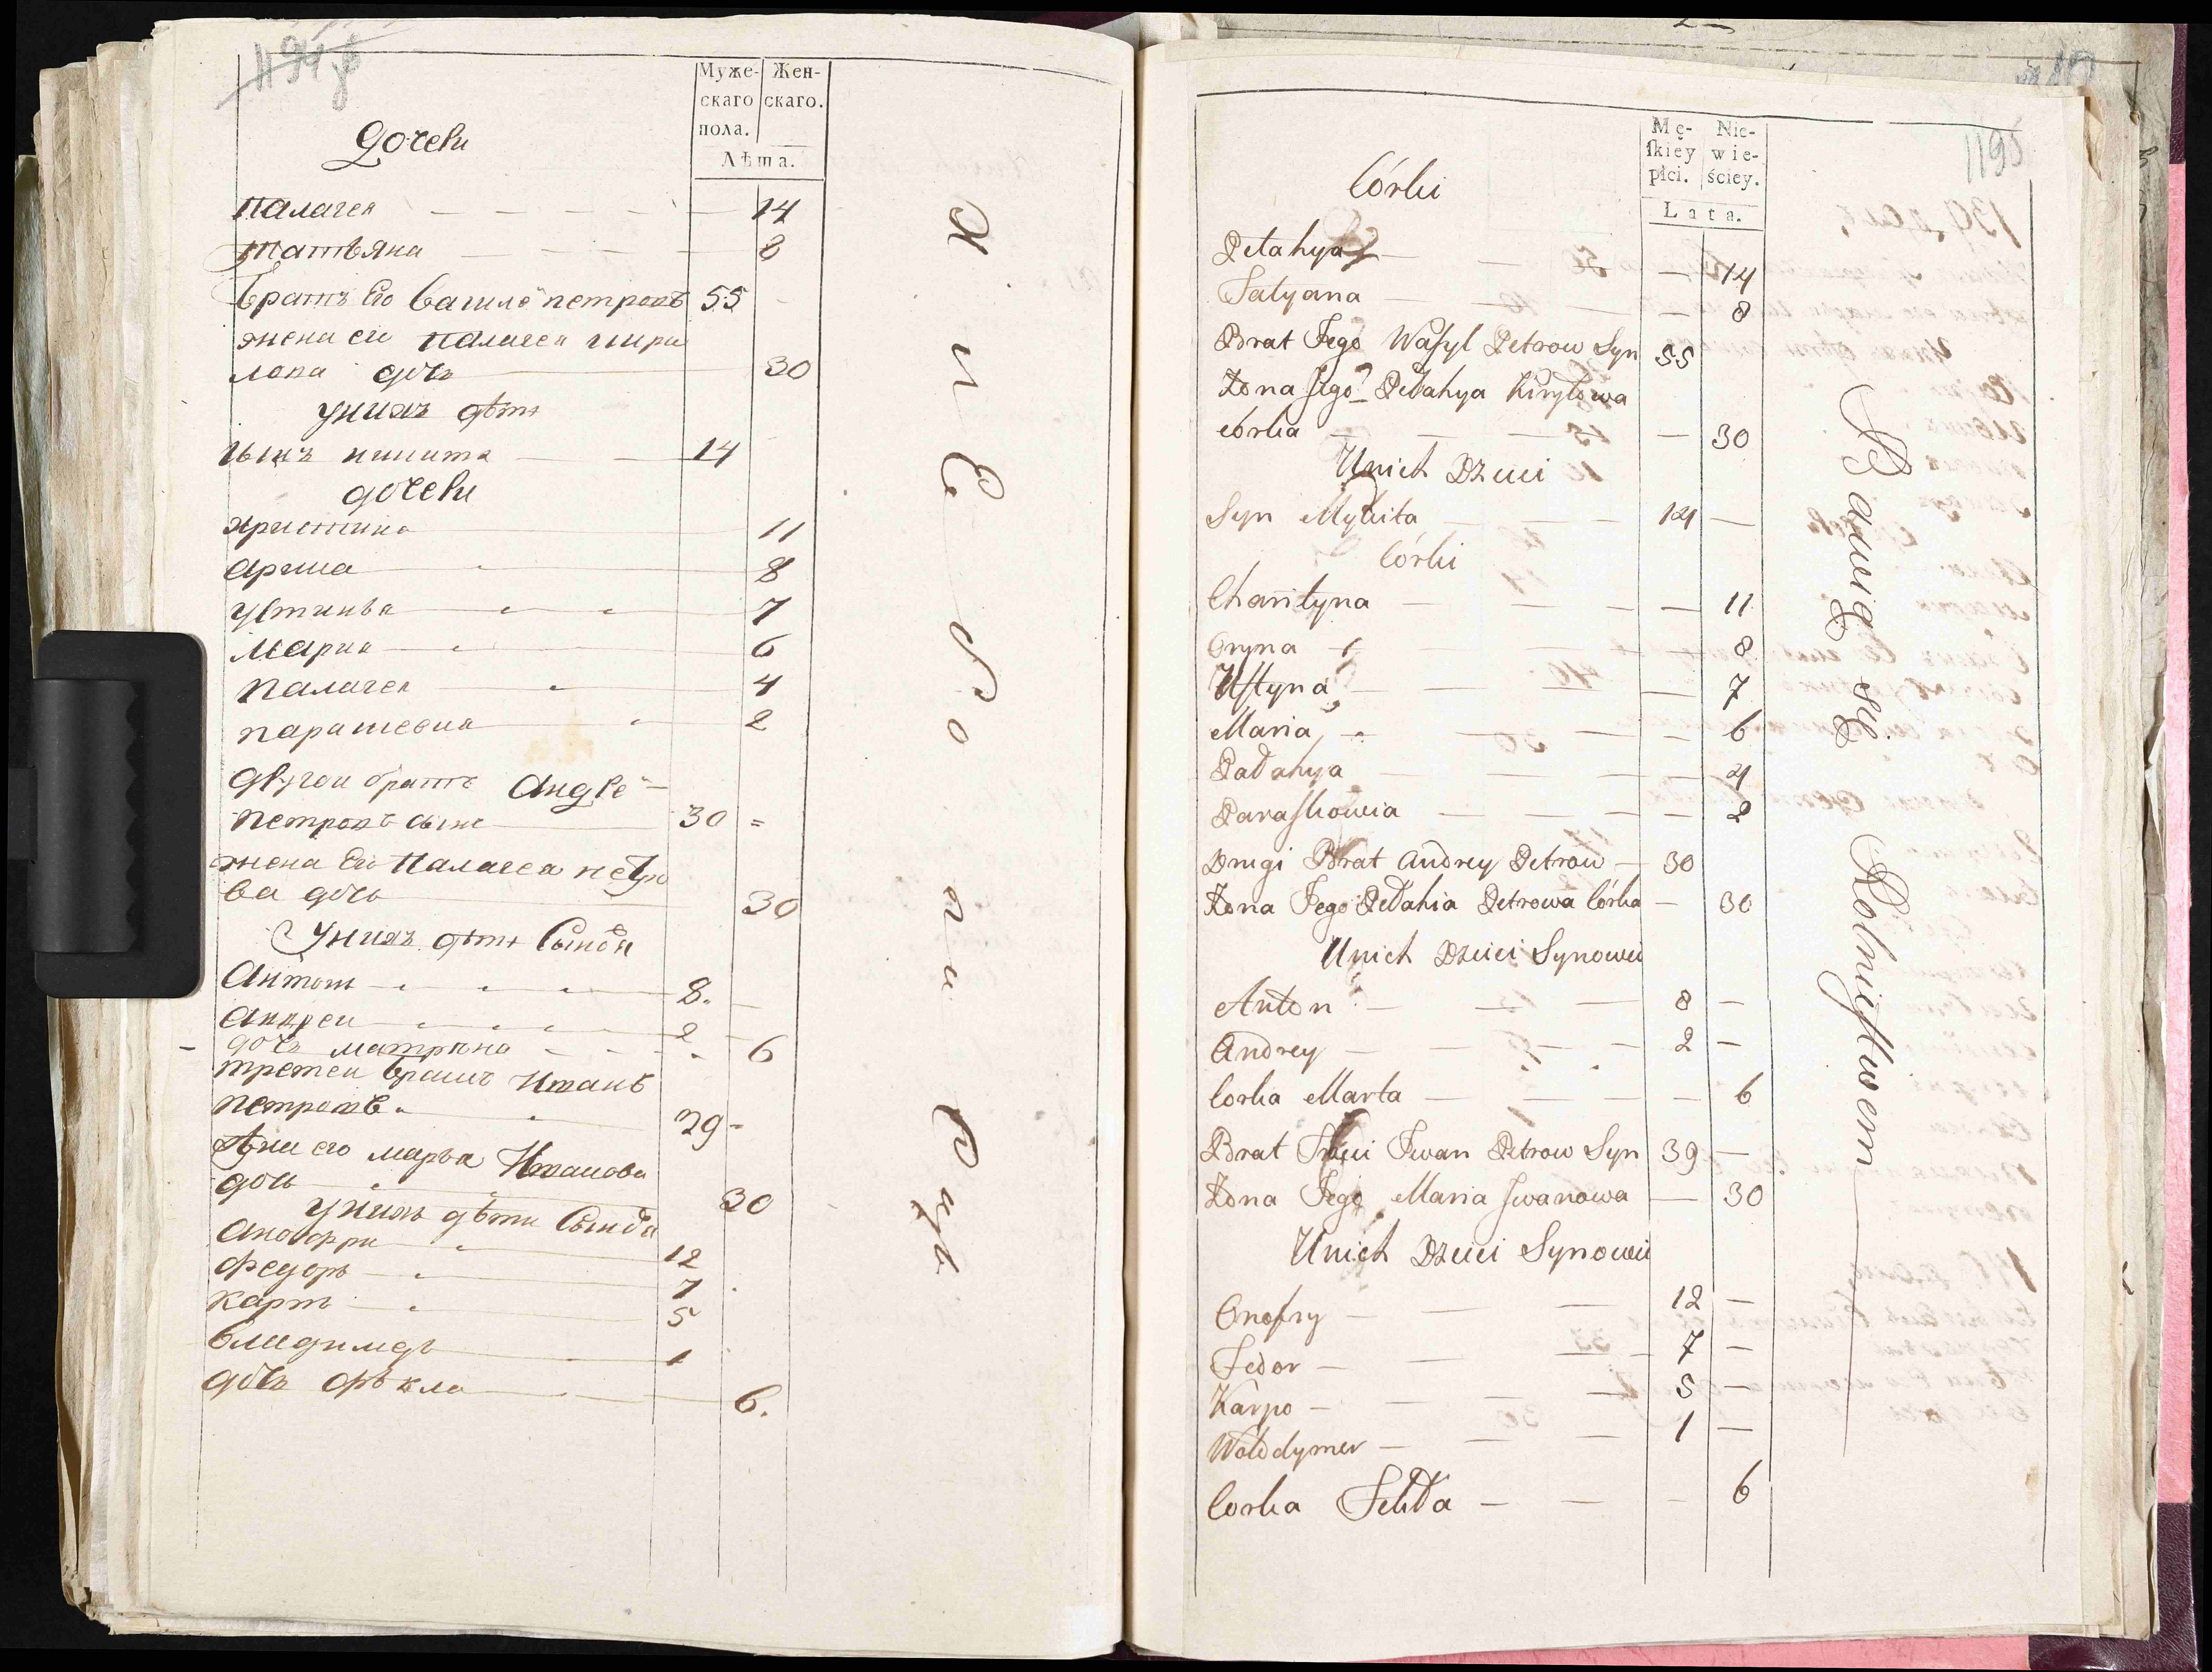 1194
Муже-
скаго
пола.
Жен-
скаго.
Лѣта.
Дочеки
палагея 14
татьяна 8
братъ Его василе петровъ 55
жена его палагея кири
лова дочъ 30
унихъ дѣти
сынъ никита 14
дочеки
христина 11
арина 8
устинья 7
мариа 6
палагея 4
парашевиа 2
другои братъ Андре
петровъ сынъ 30
жена Его палагея петро
ва дочъ 30
Унихъ дѣти Сынов
Антонъ 8.
Андреи 2
дочъ матрона 6
третеи братъ Иванъ
петровъ 29
жена его марья Иванова
дочъ 30
унихъ дѣти Сынов
Анофри 12
Федоръ 7
Карпъ 5
влидимеръ 1
дочъ фѣкла 6.
хлебо па ре
1195
Mę-
ſkiey
płci.
Nie-
wie-
ściey.
Lata.
Córki
Pełahya 14
Tatyana 8
Brat Jego Waſyl Petrow Syn 55
Żona Jego Pełahya Kiryłowa
córka 30
Unich Dzieci
Syn Mykita 14
Córki
Charityna 11
Oryna 8
Uſtyna 7
Maria 6
Pałahya 4
Paraſkowia 2
Drugi Brat Andrey Petrow 30
Żona Jego Pełahia Petrowa Córka 30
Unich Dzieci Synowie
Anton 8
Andrey 2
Corka Marta 6
Brat Trzeci Iwan Petrow Syn 39
Żona Jego Maria Iwanowa 30
Unich Dzieci Synowie
Onofry 12
Fedor 7
Karpo 5
Wołodymer 1
Corka Fekła 6
Bawią się Rolnictwem